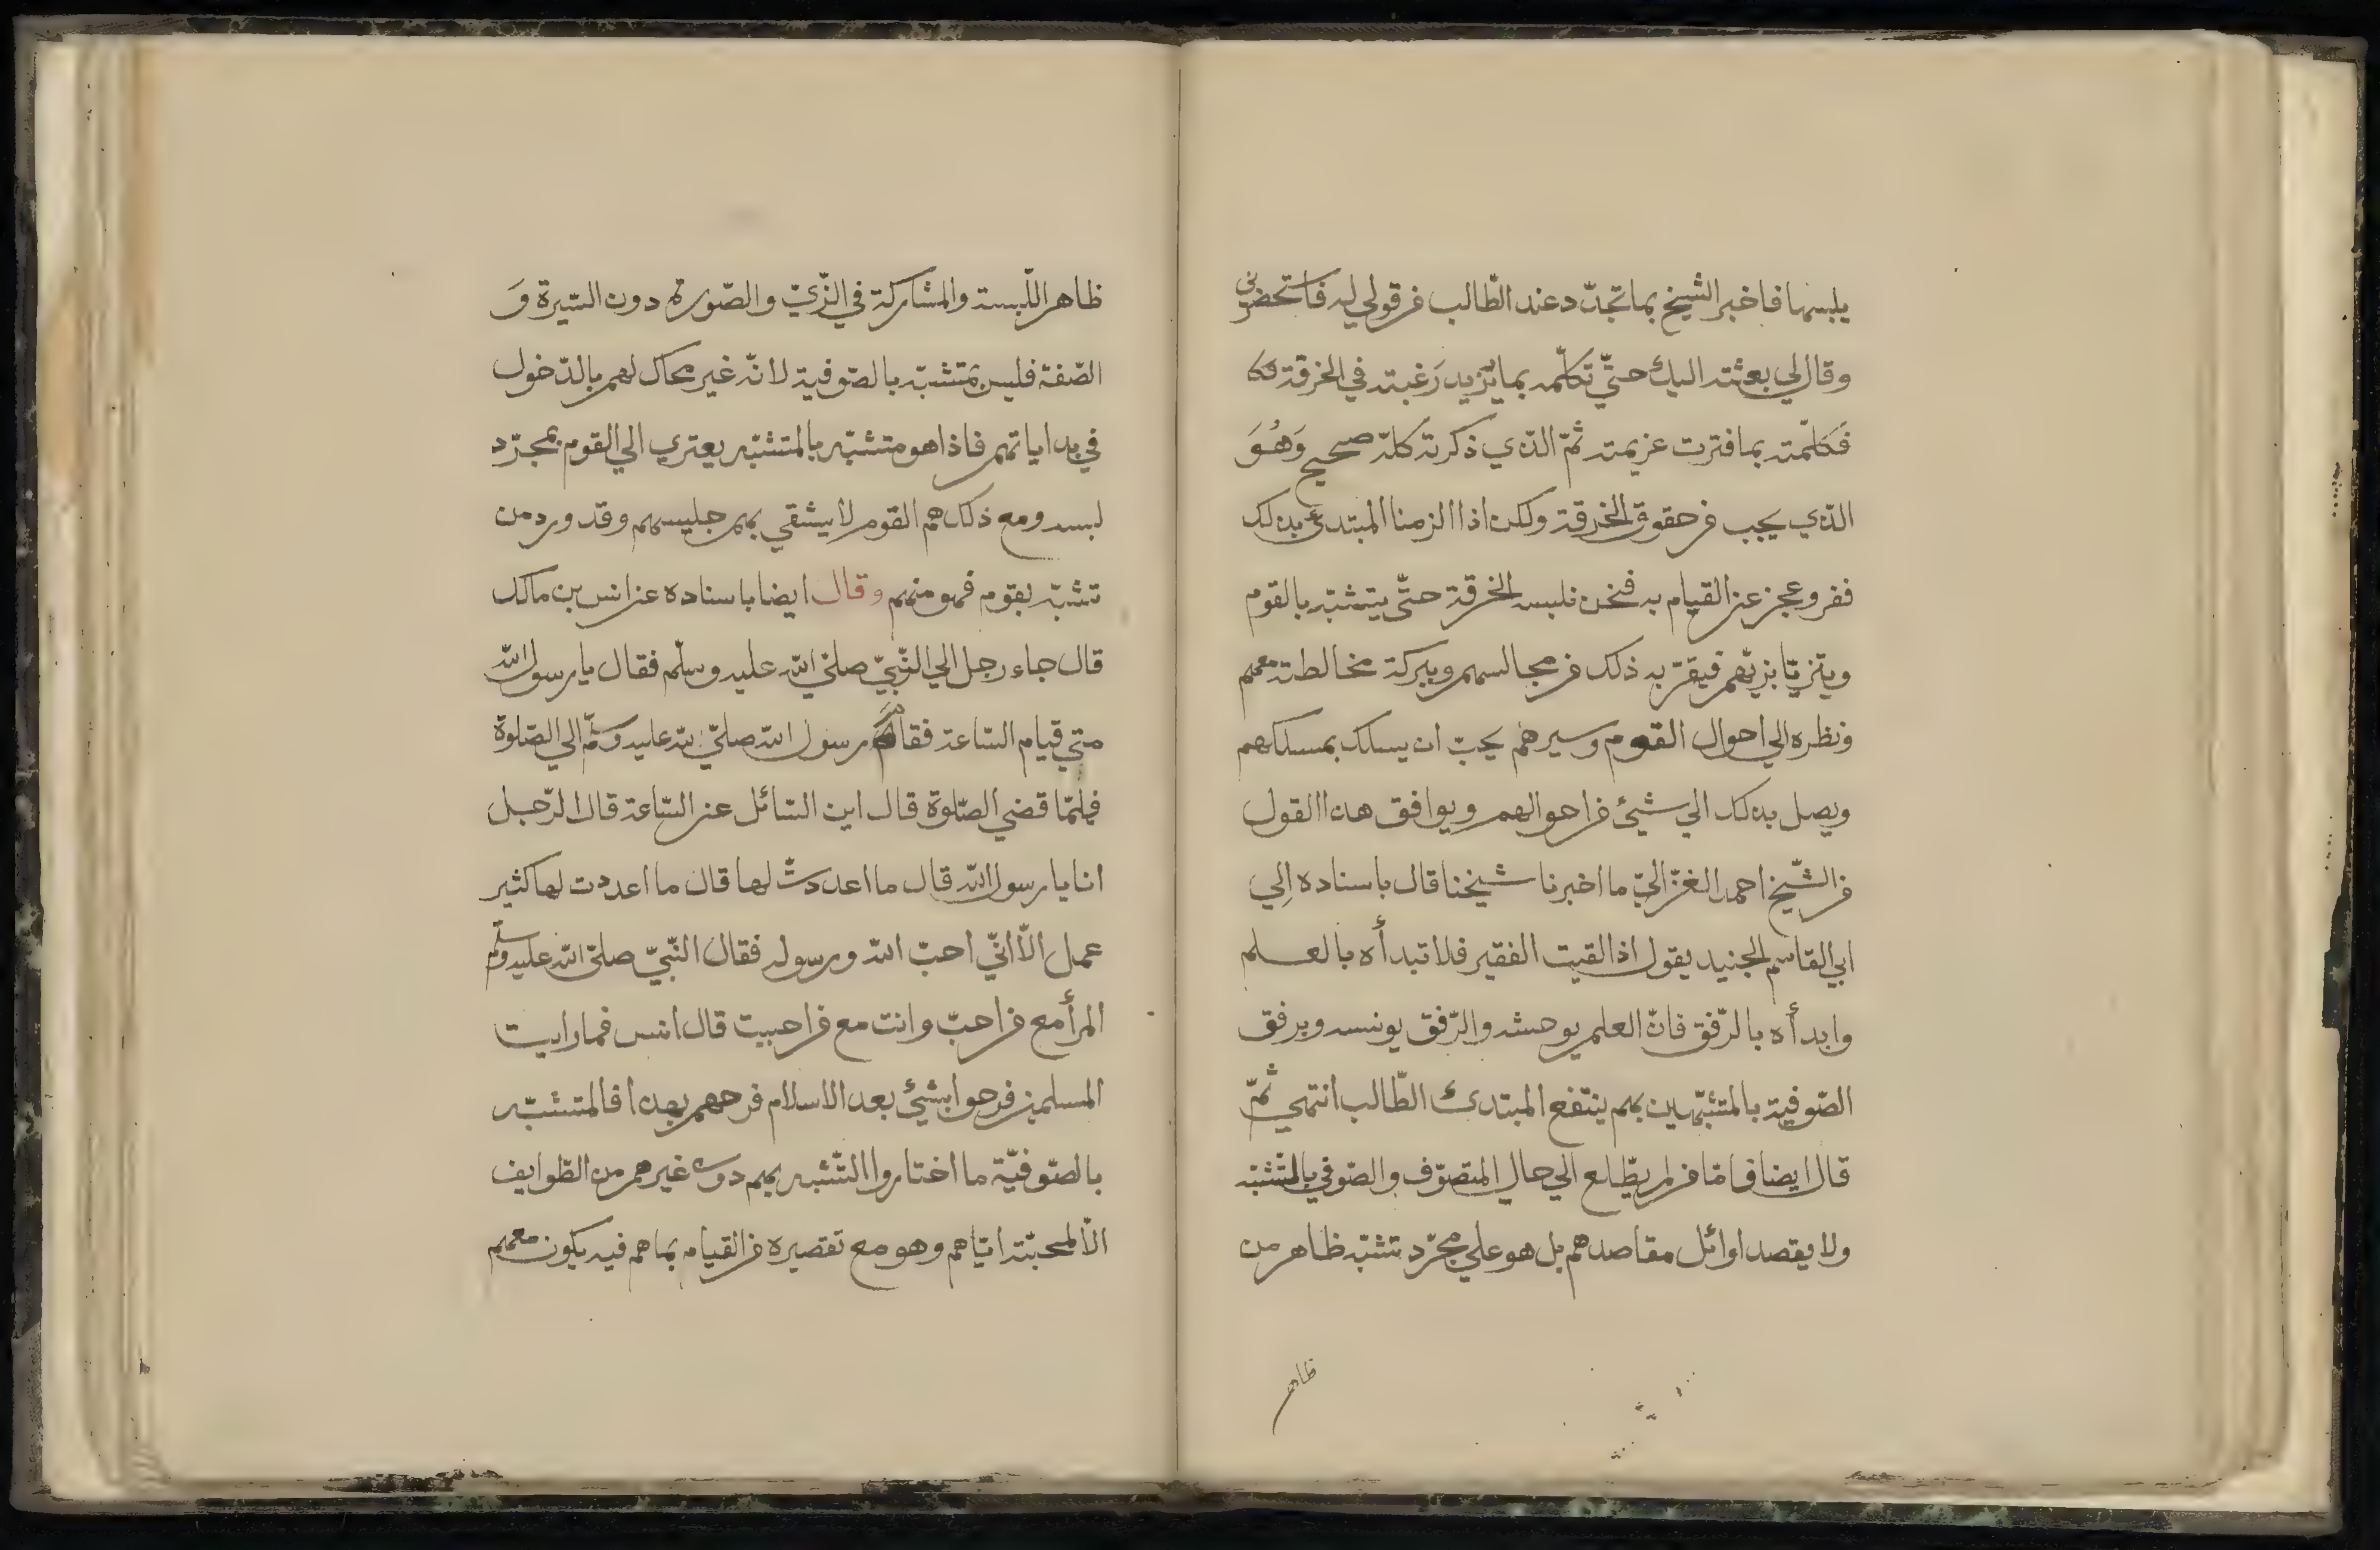 يلبسها فاخبر الشيخ بما تجدّد عند الطّالب من قولي له فاستحضرني
وقال لي بعثته اليك حتّي تكلّمه بما يزيد رَغبته في الخرقة فكا
فَكلّمته بما فترت عزيمته ثمّ الذّي ذكرته كلّه صحيح وَهُوَ
الذّي يجب من حقوق الخرقة ولكن اذا الزمنا المبتدئ بذلك
نفر وعجز عن القيام به فنحن نلبسه الخرقة حتّي يتشبّه بالقوم
ويتزيّا بزيّهم فيقرّبه ذلك من مجالسهم وببركة مخالطته معهم
ونظره الي احوال القوم وسيرهم يحبّ ان يسلك بمسلكهم
ويصل بذلك الي شيئ من احوالهم ويوافق هذا القول
من الشّيخ احمد الغزّاليّ ما اخبرنا شيخنا قال باسناده اِلي
ابي القاسم الجنيد يقول اذا لقيت الفقير فلا تبدأه بالعلم
وابدأه بالرّفق فانّ العلم يوحشه والرّفق يونسه وبرفق
الصّوفية بالمتشبّهين بهم ينتفع المبتدئ الطّالب انتهي ثمّ
قال ايضا فامّا من لم يطّلع الي حال المتصوّف والصّوفي بالتّشبّه
ولا يقصد اوائل مقاصدهم بل هو علي مجرّد تشبّه ظاهر من
ظاهر
ظاهر اللّبسة والمشاركة في الزّيّ والصّورة دون السّيرة وَ
الصّفة فليس بمتشبّه بالصّوفية لانّه غير محاك لهم بالدّخول
في بداياتهم فاذا هو متشبّه بالمتشبّه يعتري الي القوم بمجرّد
لبسه ومع ذلك هم القوم لا يشقي بهم جليسهم وقد ورد من
تشبّه بقوم فهو منهم وقال ايضا باسناده عن انس بن مالك
قال جاء رجل الي النّبيّ صلّي اللّه عليه وسلّم فقال يا رسول اللّه
متي قيام السّاعة فقام رسول اللّه صلّي اللّه عليه وسلّم الي الصّلوة
فلمّا قضي الصّلوة قال اين السّائل عن السّاعة قال الرّجل
انا يا رسول اللّه قال ما اعددت لها قال ما اعددت لها كثير
عمل الّا انّي احبّ اللّه ورسوله فقال النّبيّ صلّي اللّه عليه وسلّم
المرأ مع من احبّ وانت مع من احببت قال انس فما رايت
المسلمين فرحوا بشيئ بعد الاسلام فرحهم بهذا فالمتشبّه
بالصّوفيّة ما اختاروا التّشبّه بهم دون غيرهم من الطّوايف
الّا لمحبّته ايّاهم وهو مع تقصيره من القيام بما هم فيه يكون معهم